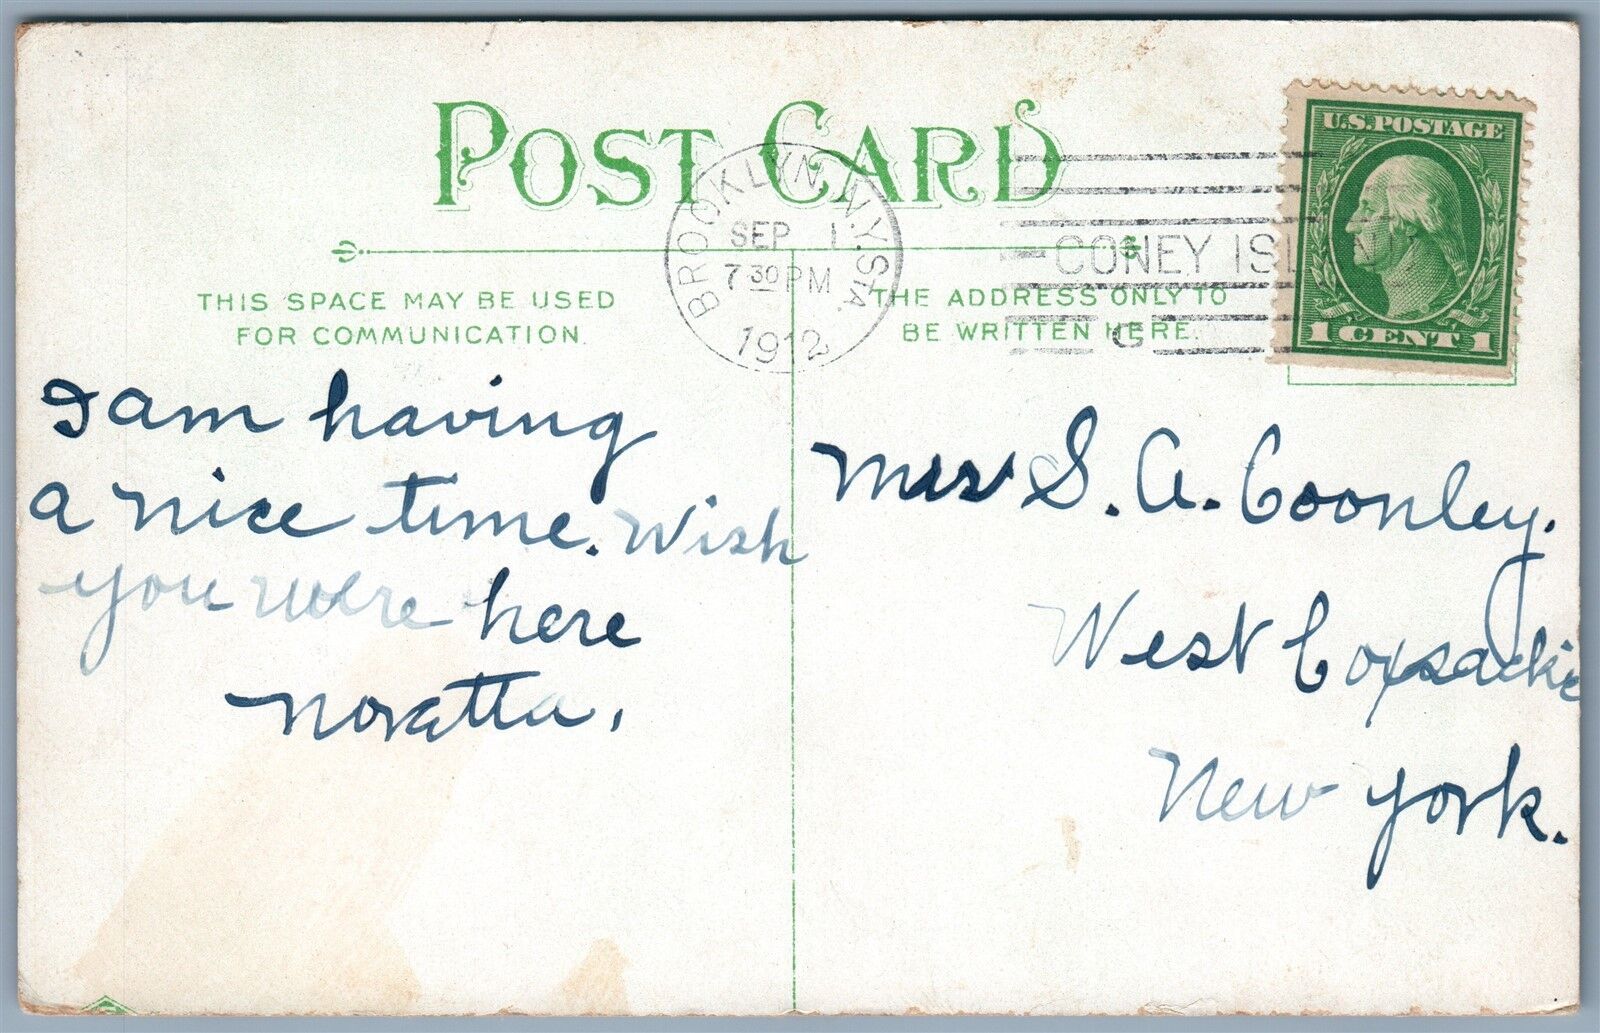 POST CARD
BROOKLYN, N.Y. STA.
SEP 1
7 30 PM
1912
CONEY ISLAND
G
U.S. POSTAGE
1 CENT 1
THIS SPACE MAY BE USED
FOR COMMUNICATION.
THE ADDRESS ONLY TO
BE WRITTEN HERE.
I am having
a nice time. Wish
you were here
Noratta.
Mrs S. A. Coonley.
West Coxsackie
New York.